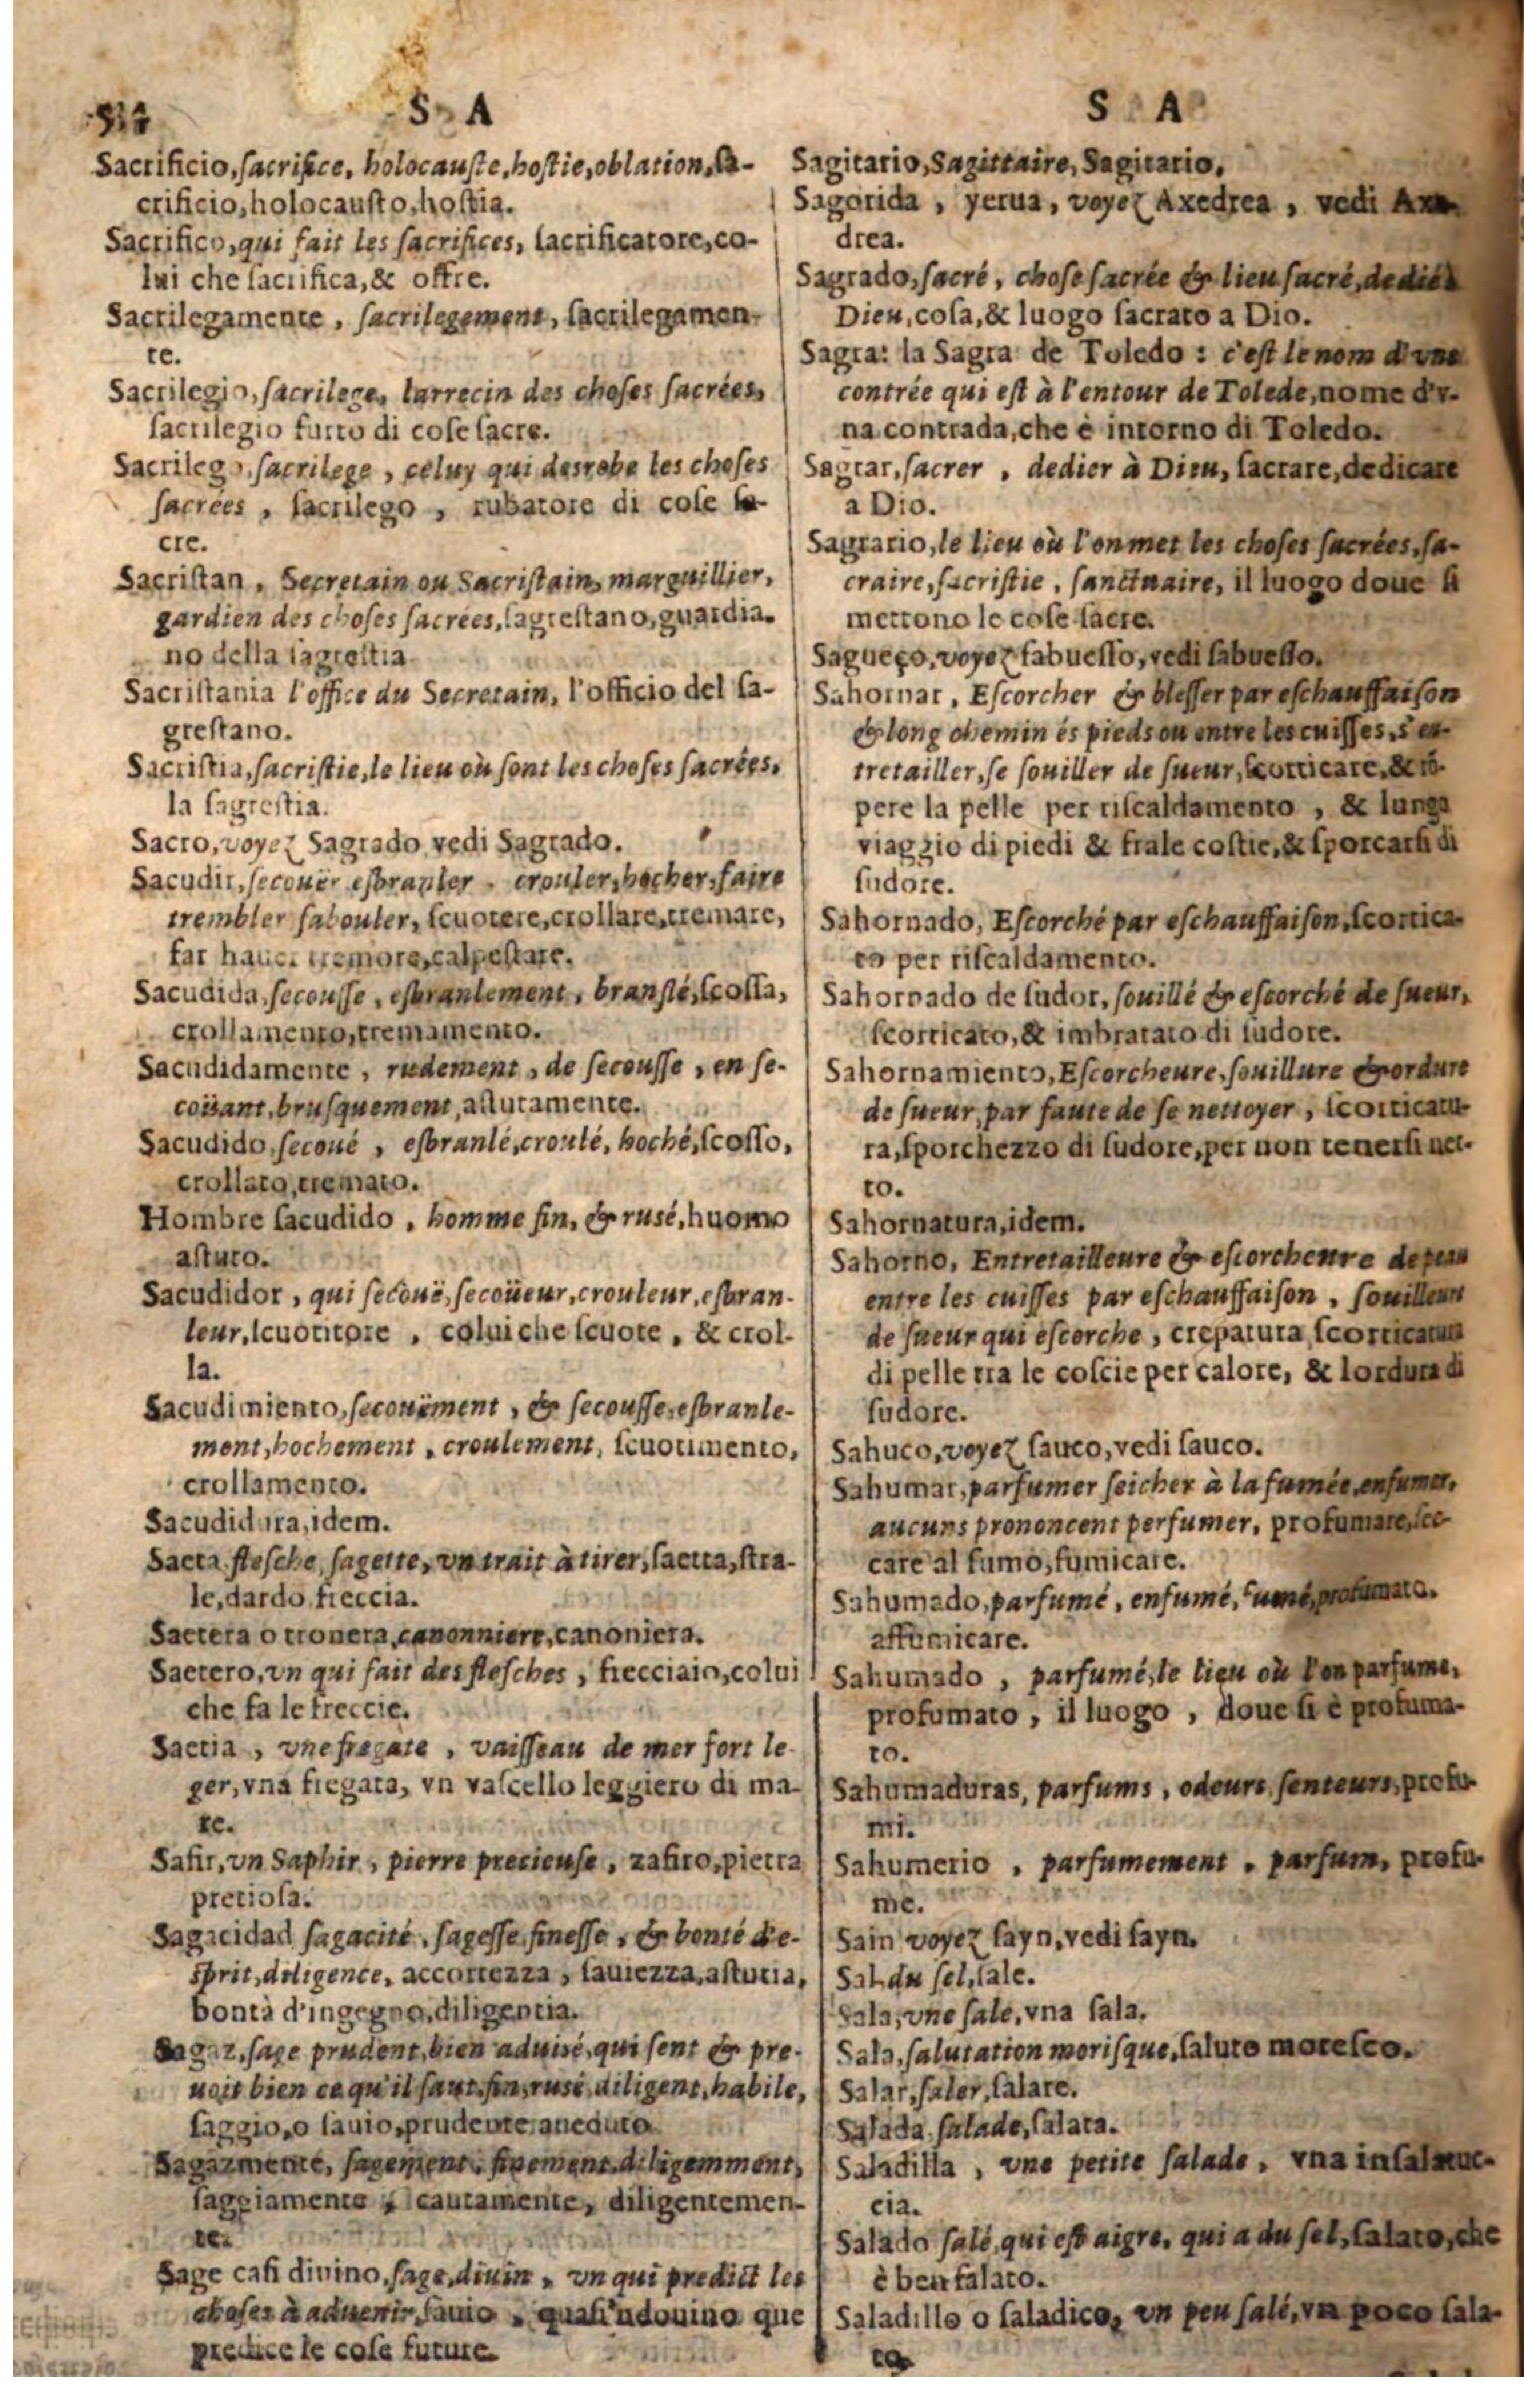 S A
Sacrificio, sacrifice, holocauste, hostie, oblation, sa-
crificio, holocausto, hostia.
Sacrifico, qui fait les sacrifices, sacrificatore, co-
lui che sacrifica, & offre.
Sacrilegamente, sacrilegement, sacrilegamen-
te.
Sacrilegio, sacrilege, larrecin des choses sacrées,
sacrilegio furto di cose sacre.
Sacrilego, sacrilege, celuy qui desrobe les choses
sacrées, sacrilego, rubatore di cose sa-
cre.
Sacristan, Secretain ou Sacristain, marguillier,
gardien des choses sacrées, sagrestano, guardia-
no della sagrestia
Sacristania l'office du Secretain, l'officio del sa-
grestano.
Sacristia, sacristie, le lieu où sont les choses sacrées,
la sagrestia.
Sacro, voyez Sagrado vedi Sagrado.
Sacudir, secouër esbranler, crouler, hocher, faire
trembler sabouler, scuotere, crollare, tremare,
far hauer tremore, calpestare.
Sacudida, secousse, esbranlement, branslé, scossa,
crollamento, tremamento.
Sacudidamente, rudement, de secousse, en se-
coüant, brusquement, astutamente.
Sacudido, secoué, esbranlé, croulé, hoché, scosso,
crollato, tremato.
Hombre sacudido, homme fin, & rusé, huomo
astuto.
Sacudidor, qui secouë, secoüeur, crouleur, esbran-
leur, scuotitore, colui che scuote, & crol-
la.
Sacudimiento, secouëment, & secousse, esbranle-
ment, hochement, croulement, scuotimento,
crollamento.
Sacudidura, idem.
Saeta flesche, sagette, vn trait à tirer, saetta, stra-
le, dardo freccia.
Saetera o tronera, canonniere, canoniera.
Saetero, vn qui fait des flesches, frecciaio, colui
che fa le freccie.
Saetia, vne fregate, vaisseau de mer fort le-
ger, vna fregata, vn vascello leggiero di ma-
re.
Safir, vn Saphir, pierre precieuse, zafiro, pietra
pretiosa.
Sagacidad sagacité, sagesse, finesse, & bonté d'e-
sprit, diligence, accortezza, sauiezza, astutia,
bontà d'ingegno, diligentia.
Sagaz, sage prudent, bien aduisé, qui sent & pre-
uoit bien ce qu'il faut, fin, rusé, diligent, habile,
saggio, o sauio, prudente aueduto
Sagazmente, sagement, finement, diligemment,
saggiamente, cautamente, diligentemen-
te.
Sage casi diuino, sage, diuin, vn qui predict les
choses à aduenir, sauio, quasi'ndouino que
predice le cose future.
S A
Sagitario, Sagittaire, Sagitario.
Sagorida, yerua, voyez Axedrea, vedi Axe-
drea.
Sagrado, sacré, chose sacrée & lieu sacré, dedié à
Dieu, cosa, & luogo sacrato a Dio.
Sagra: la Sagra de Toledo: c'est le nom d'vne
contrée qui est à l'entour de Tolede, nome d'v-
na contrada, che è intorno di Toledo.
Sagrar, sacrer, dedier à Dieu, sacrare, dedicare
a Dio.
Sagrario, le lieu où l'on met les choses sacrées, sa-
craire, sacristie, sanctuaire, il luogo doue si
mettono le cose sacre.
Sagueço, voyez sabuesso, vedi sabuesso.
Sahornar, Escorcher & blesser par eschauffaison
& long chemin és pieds ou entre les cuisses, s'en-
tretailler, se souiller de sueur, scorticare, & rõ-
pere la pelle per riscaldamento, & lungo
viaggio di piedi & frale costie, & sporcarsi di
sudore.
Sahornado, Escorché par eschauffaison, scortica-
to per riscaldamento.
Sahornado de sudor, souillé & escorché de sueur,
scorticato, & imbratato di sudore.
Sahornamiento, Escorcheure, souillure & ordure
de sueur, par faute de se nettoyer, scorticatu-
ra, sporchezzo di sudore, per non tenersi net-
to.
Sahornatura, idem.
Sahorno, Entretailleure & escorcheure de peau
entre les cuisses par eschauffaison, souilleure
de sueur qui escorche, crepatura scorticatura
di pelle tra le coscie per calore, & lordura di
sudore.
Sahuco, voyez sauco, vedi sauco.
Sahumar, parfumer seicher à la fumée, enfumer,
aucuns prononcent perfumer, profumare, sec-
care al fumo, fumicare.
Sahumado, parfumé, enfumé, fumé, profumato.
affumicare.
Sahumado, parfumé, le lieu où l'on parfume,
profumato, il luogo, doue si è profuma-
to.
Sahumaduras, parfums, odeurs, senteurs, profu-
mi.
Sahumerio, parfumement, parfum, profu-
me.
Sain voyez sayn, vedi sayn.
Sal, du sel, sale.
Sala, vne sale, vna sala.
Sala, salutation morisque, saluto moresco.
Salar, saler, salare.
Salada salade, salata.
Saladilla, vne petite salade, vna insalatuc-
cia.
Salado salé, qui est aigre, qui a du sel, salato, che
è ben salato.
Saladillo o saladico, vn peu salé, vn poco sala-
to.